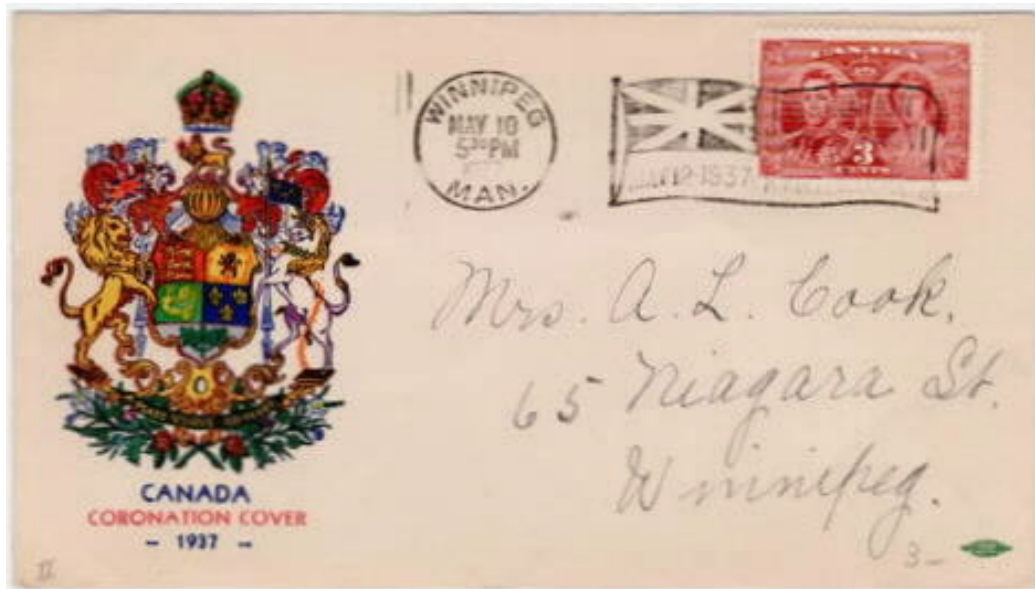 WINNIPEG
MAY 10
5³⁰ PM
MAN.
MAY 12-1937
CANADA
3
CENTS
Mrs. A. L. Cook.
65 Niagara St.
Winnipeg.
CANADA
CORONATION COVER
- 1937 -
3-
II